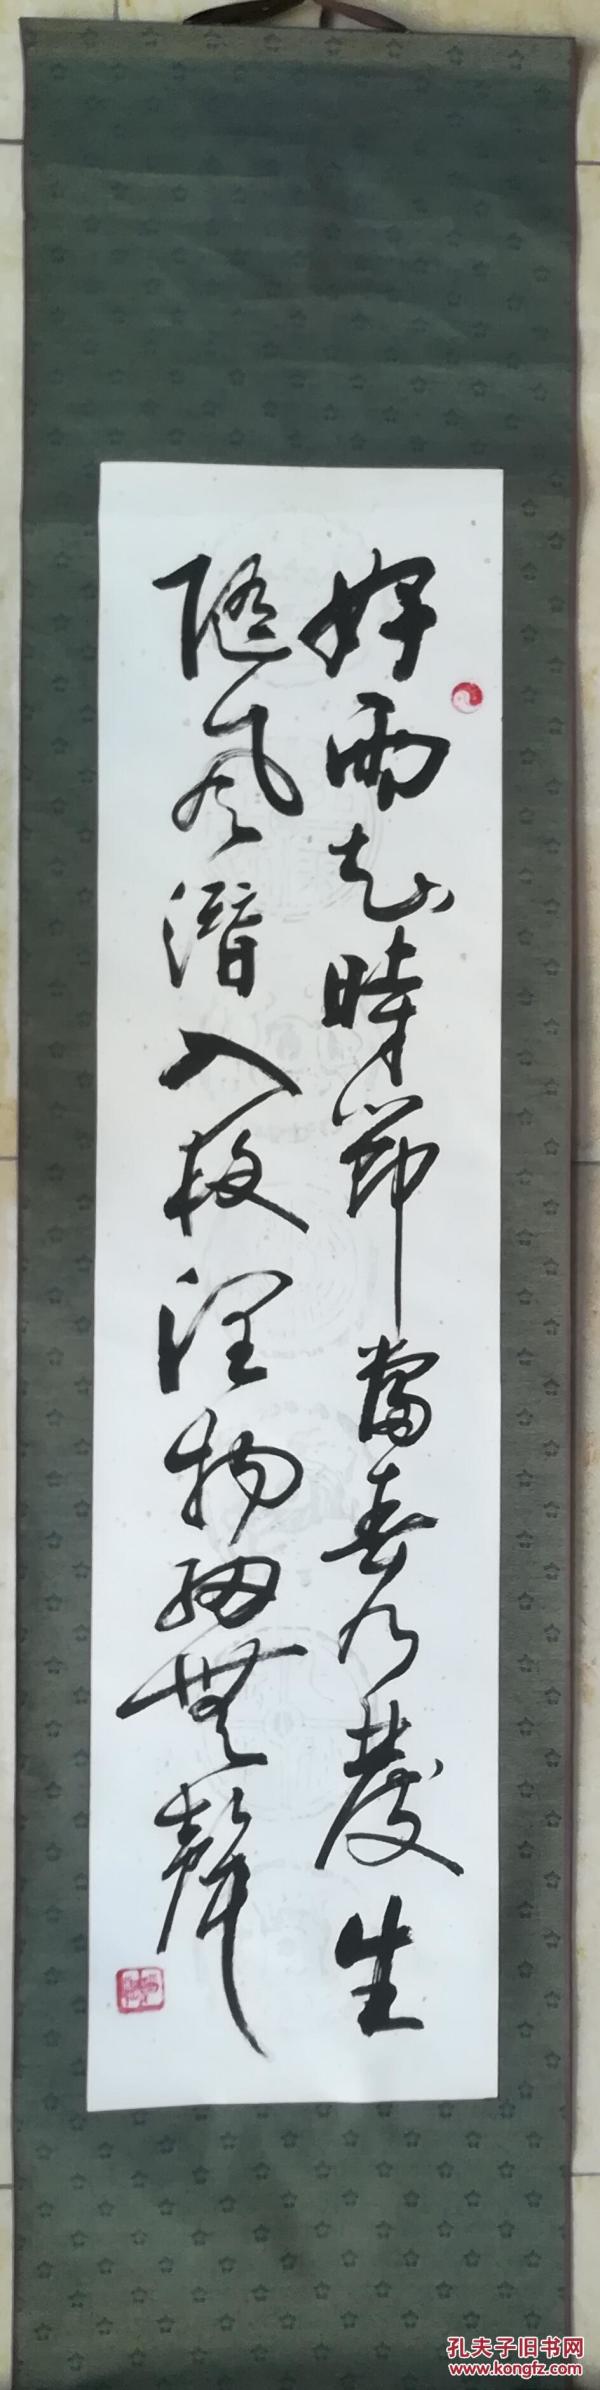 好雨知時節當春乃發生
隨風潛入夜潤物細無聲
孔夫子旧书网
www.kongfz.com